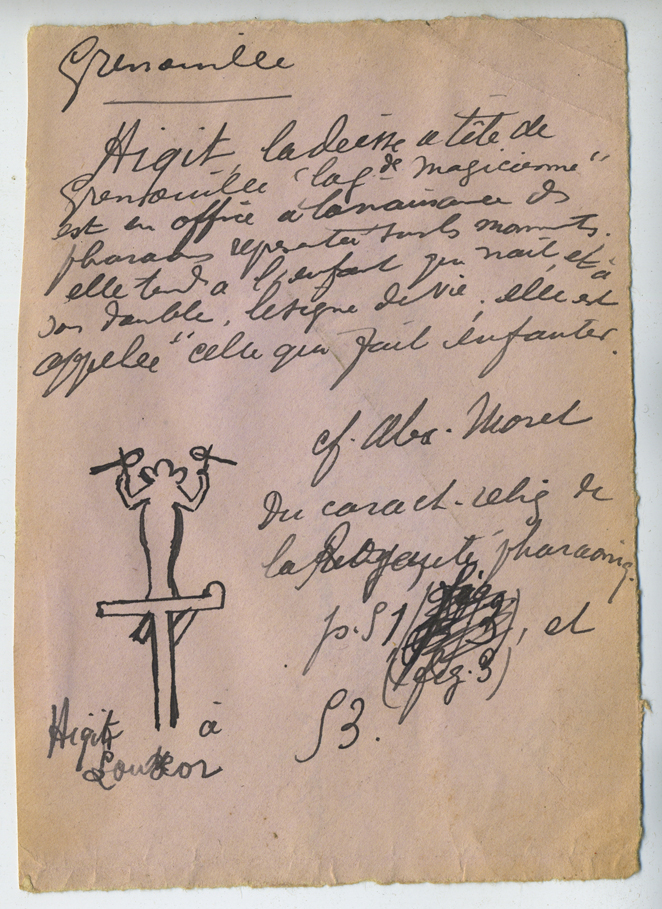 Grenouille
Higit, la déesse à tête de
Grenouille "la gde magicienne"
est en office à la naissance des
pharaons représentée sur les monuments.
elle tend à l'enfant qui naît et à
son double, le signe de vie. elle est
appelée "celle qui fait enfanter.
cf. Alex. Moret
Du caract. relig de
la Royauté pharaoniq.
p. 51 (fig. 3), et
(fig. 3)
53.
Higit à
Louxor